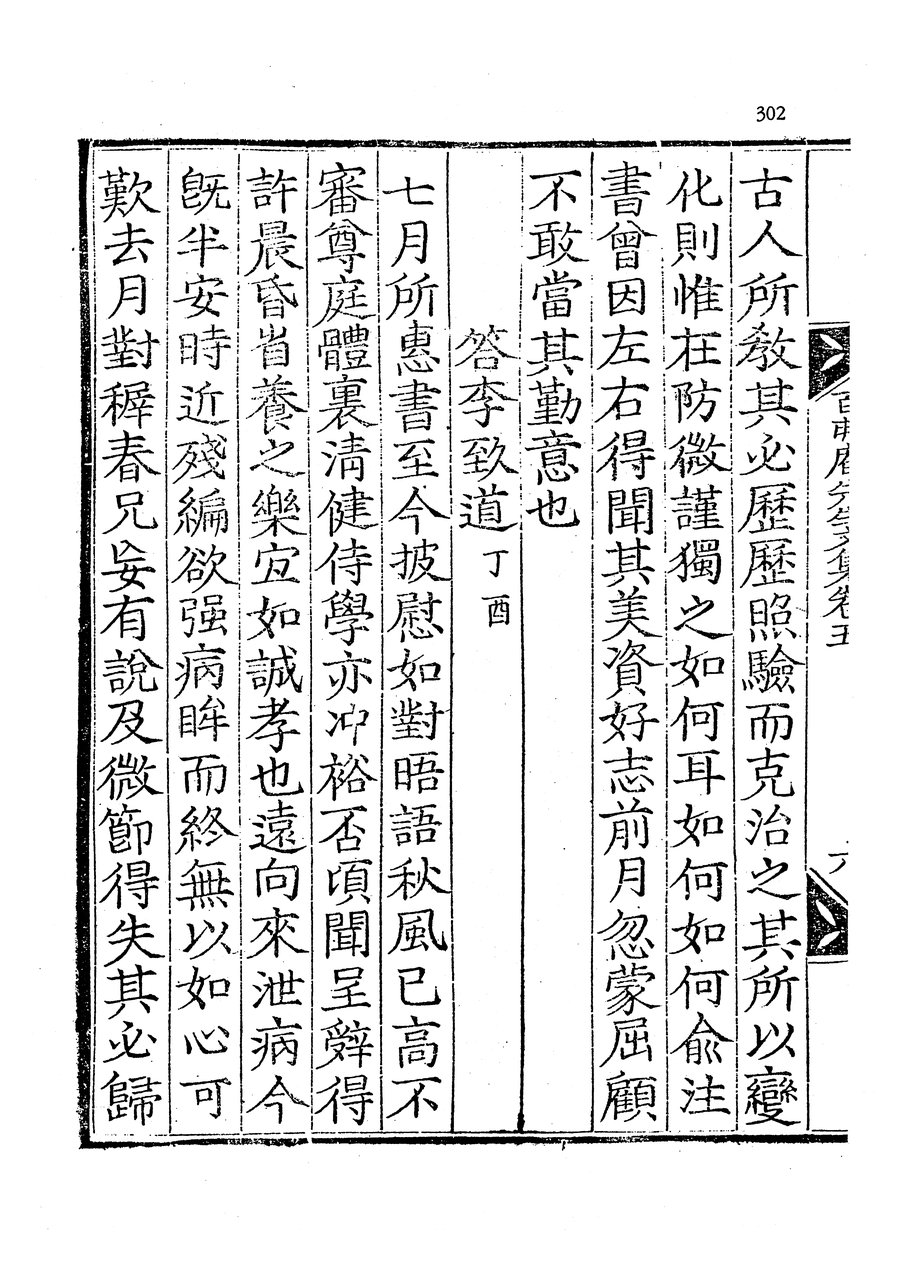 302
古人所敎其必歷歷照驗而克治之其所以變
化則惟在防微謹獨之如何耳如何如何兪注
書曾因左右得聞其美資好志前月忽蒙屈顧
不敢當其勤意也
答李致道丁酉
七月所惠書至今披慰如對晤語秋風已高不
審尊庭體裏淸健侍學亦冲裕否頃聞呈辭得
許晨昏省養之樂宜如誠孝也遠向來泄病今
旣半安時近殘編欲强病眸而終無以如心可
歎去月對穉春兄妄有說及微節得失其必歸